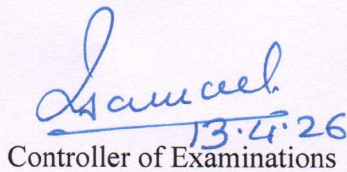 13.4.26
Controller of Examinations